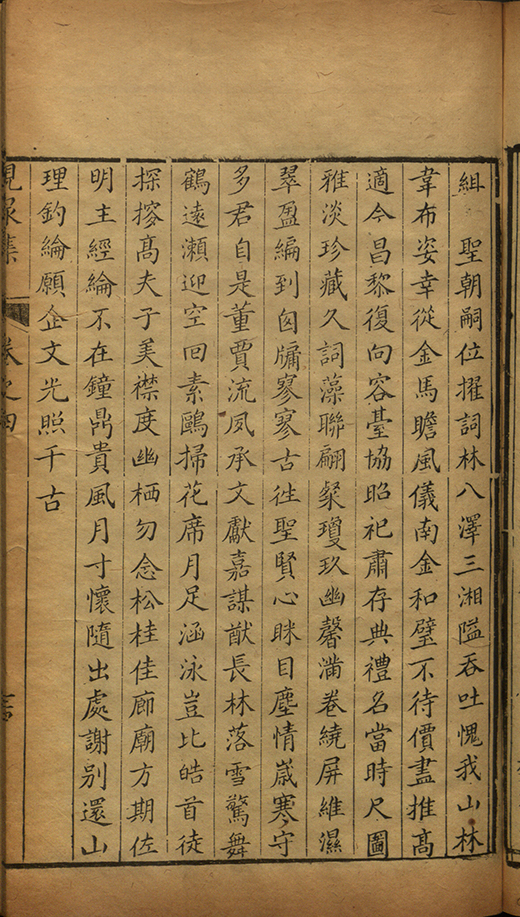 組　聖朝嗣位擢詞林八澤三湘隘吞吐愧我山林
韋布姿幸從金馬瞻風儀南金和璧不待價盡推高
適今昌黎復向容臺協昭祀肅存典禮名當時尺圖
雅淡珍藏久詞藻聯翩粲瓊玖幽馨滿卷繞屏維濕
翠盈編到囪牖寥寥古徃聖賢心眯目塵情嵗寒守
多君自是董賈流夙承文獻嘉謀猷長林落雪驚舞
鶴遠瀬迎空回素鷗掃花席月足涵泳豈比皓首徒
探撏髙夫子美襟度幽栖勿念松桂佳廊廟方期佐
明主經綸不在鐘鼎貴風月寸懷隨出處謝別還山
理釣綸願企文光照千古
集
卷之四